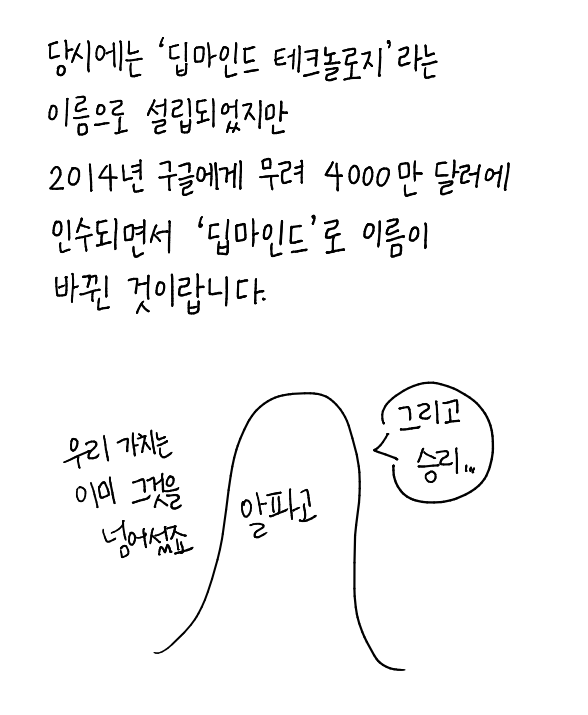 당시에는 '딥마인드 테크놀로지'라는
이름으로 설립되었지만
2014년 구글에게 무려 4000만 달러에
인수되면서 '딥마인드'로 이름이
바뀐 것이랍니다.
그리고
승리...
우리 가치는
이미 그것을
넘어섰죠
알파고